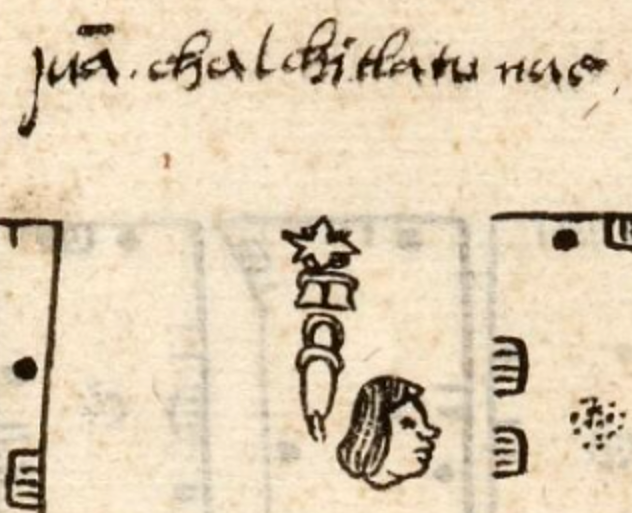 juā. chalchitlatunac